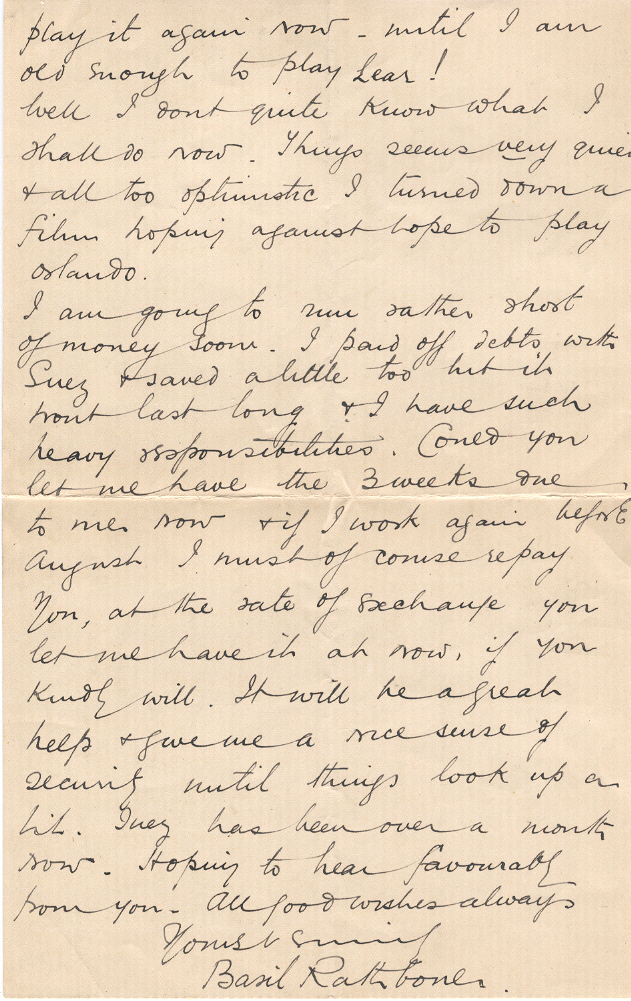 play it again now - until I am
old enough to play Lear!
Well I dont quite know what I
shall do now. Things seems very quiet
& all too optimistic I turned down a
film hoping against hope to play
Orlando.
I am going to run rather short
of money soon. I paid off debts with
Suez & saved a little too but it
wont last long & I have such
heavy responsibilities. Could you
let me have the 3 weeks due
to me now & if I work again before
August I must of course repay
you, at the rate of exchange you
let me have it at now, if you
kindly will. It will be a great
help & give me a nice sense of
security until things look up a
bit. Inez has been over a month
now. Hoping to hear favourably
from you. All good wishes always
Yours
Basil Rathbone.